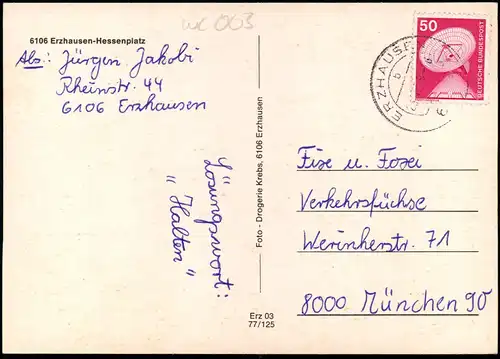 WK 003
6106 Erzhausen-Hessenplatz
Abs: Jürgen Jakobi
Rheinstr. 44
6106 Erzhausen
Lösungswort:
"Halten"
Foto - Drogerie Krebs, 6106 Erzhausen
Erz 03
77/125
50
DEUTSCHE BUNDESPOST
ERZHAUSE
Fixe u. Foxi
Verkehrsfüchse
Werinherstr. 71
8000 München 90